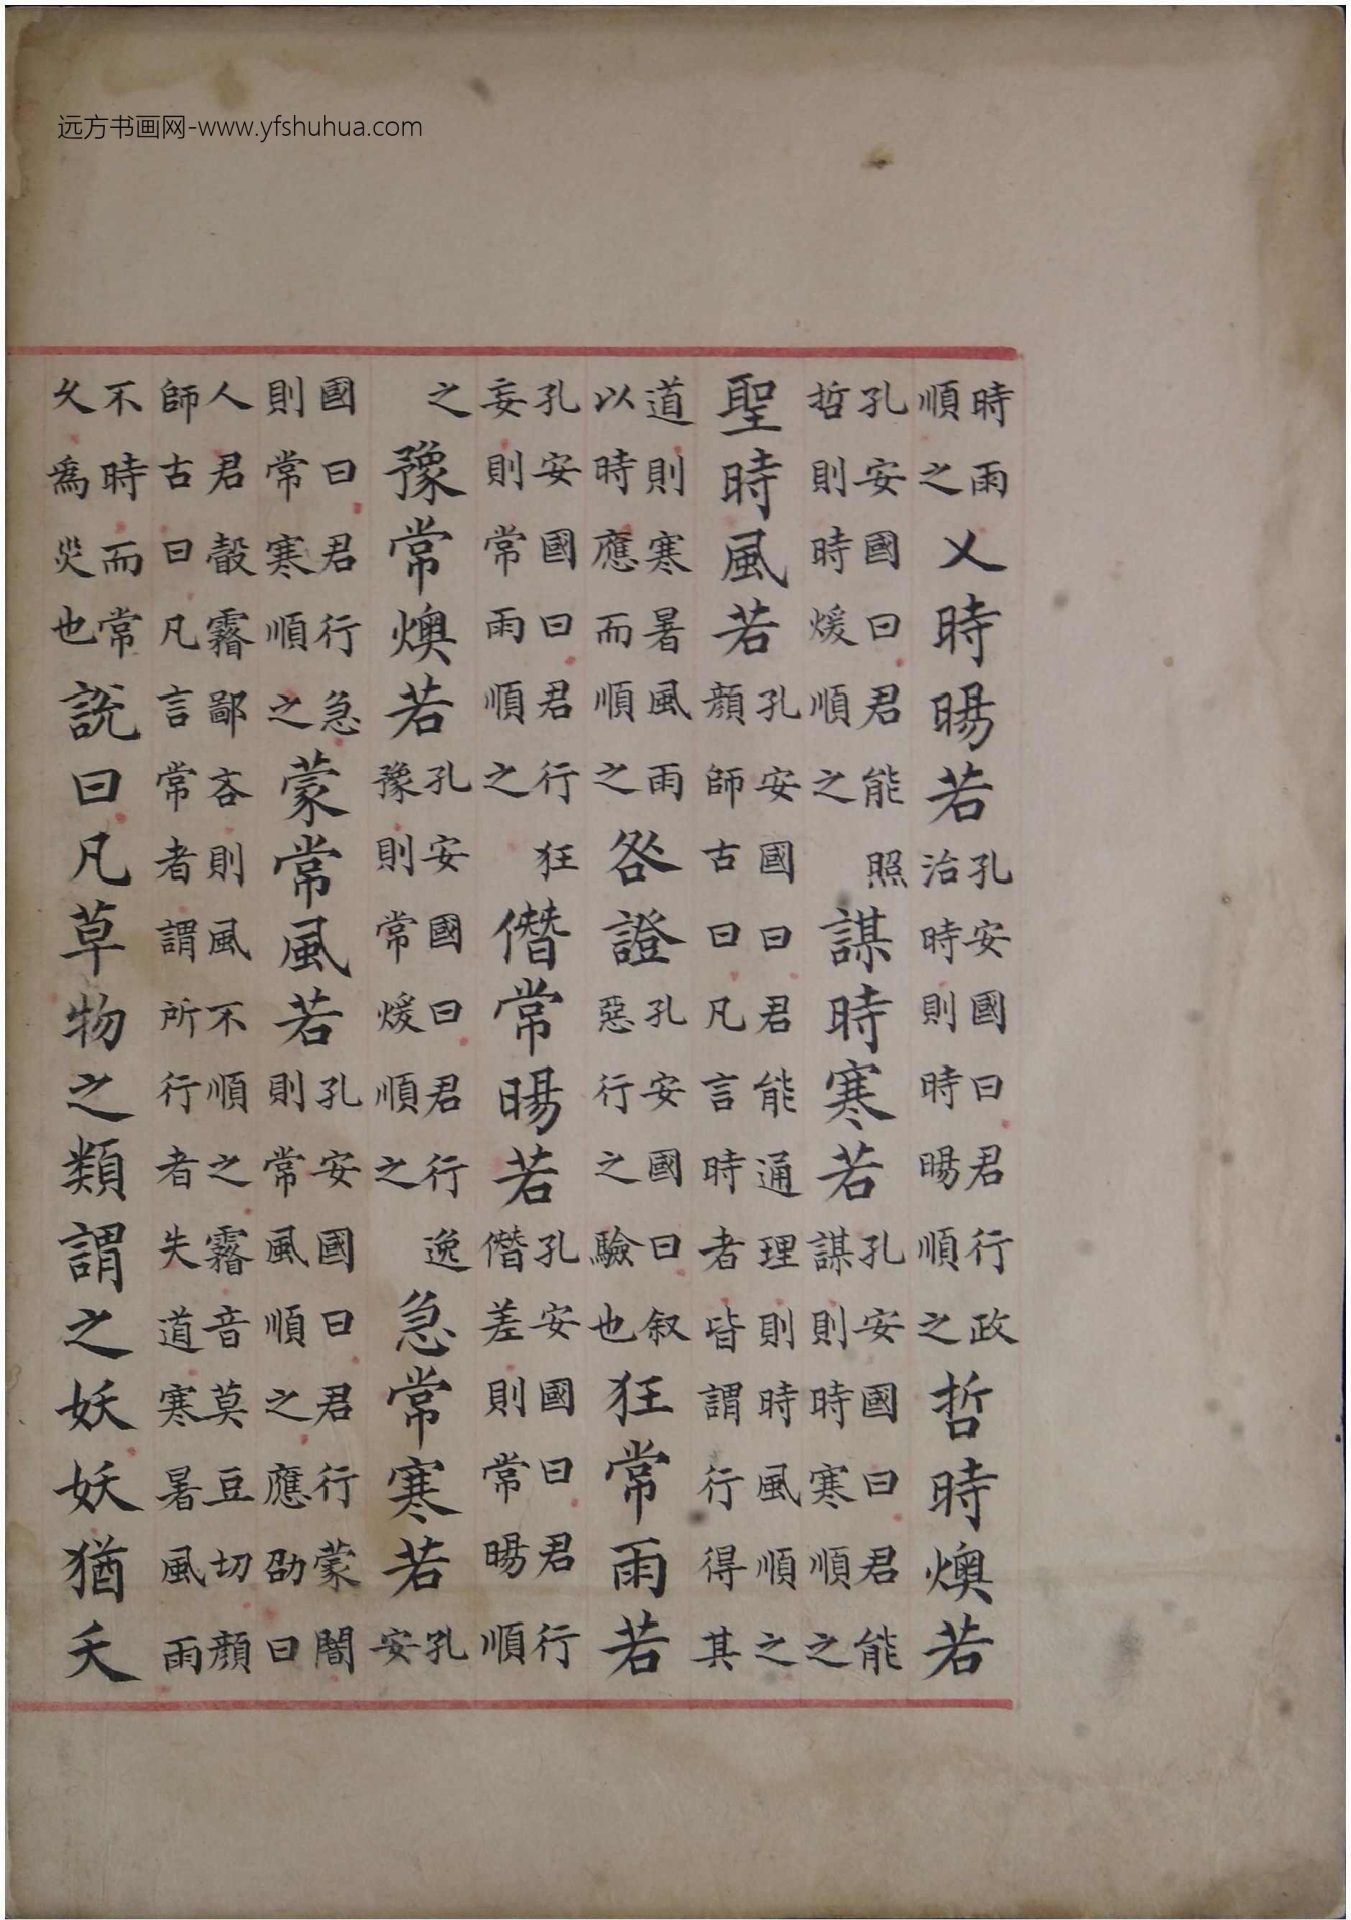 远方书画网-www.yfshuhua.com
時雨順之乂時暘若孔安國曰君行政治時則時暘順之哲時燠若
孔安國曰君能照哲則時煖順之謀時寒若孔安國曰君能謀則時寒順之
聖時風若孔安國曰君能通理則時風順之顏師古曰凡言時者皆謂行得其
道則寒暑風雨以時應而順之咎證孔安國曰叙惡行之驗也狂常雨若
孔安國曰君行狂妄則常雨順之僭常暘若孔安國曰君行僭差則常暘順
之豫常燠若孔安國曰君行逸豫則常煖順之急常寒若孔安
國曰君行急則常寒順之蒙常風若孔安國曰君行蒙闇則常風順之應劭曰
人君瞉霿鄙吝則風不順之霿音莫豆切顏師古曰凡言常者謂所行者失道寒暑風雨
不時而常久爲災也說曰凡草物之類謂之妖妖猶夭